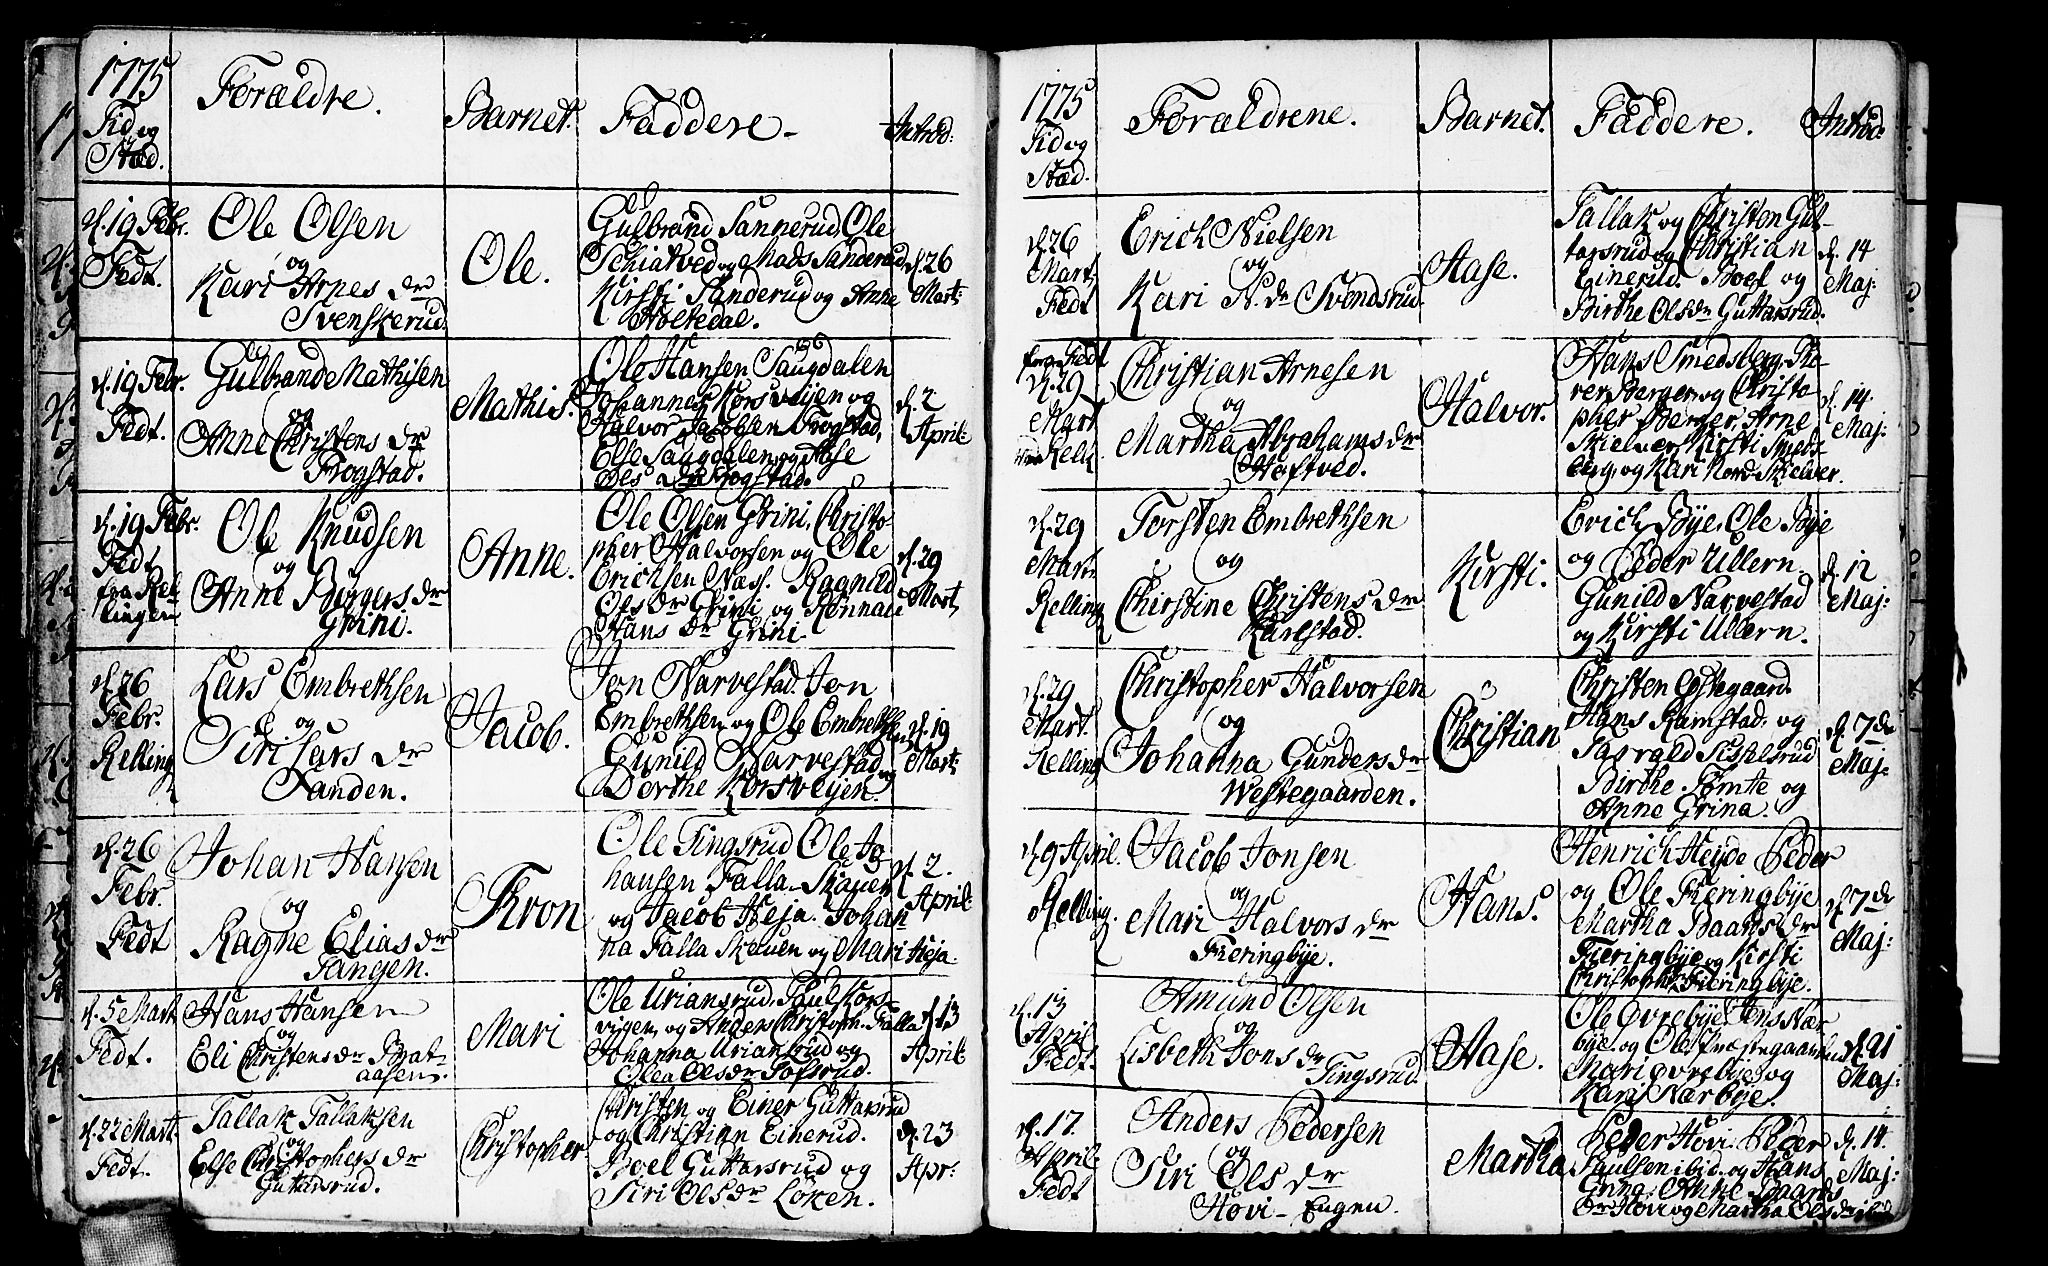 1775
Tid og
Stæd.
Forældre.
Barnet.
Faddere
Introd:
d. 19 Febr.
Fedt.
Ole Olsen
og
Kari Arnes dr
Svenskerud.
Ole.
Gulbrand Sannerud, Ole
Schiatved og Mads Sanderud
Kirsti Sanderud og Anne
Holtedal.
d. 26
Mart:
d. 19 Febr.
Fedt.
Gulbrand Mathisen
og
Anne Christens dr
Frogstad.
Mathis.
Ole Hansen Saugdalen
Johannes Korsveijen og
Halvor Jacobsen Frogstad,
Else Saugdalen og Aase
Ols dr Frogstad.
d. 2
April:
d. 19 Febr.
Fedt
fra Rel-
lingen
Ole Knudsen
og
Anne Birgers dr
Grini.
Anne.
Ole Olsen Grini, Christo-
pher Halvorsen og Ole
Erichsen Næs. Ragnild
Ols dr Grini og Rønnau
Hans dr Grini.
d. 29
Mart,
d. 26
Febr.
Relling
Lars Embrethsen
og
Siri Lars dr
Sanden.
Jacob.
Jon Narvestad. Jon
Embrethsen og Ole Embrethsen
Gunild Narvestad og
Dorthe Korsveijen.
d. 19
Mart:
d. 26
Febr.
Fedt
Johan Hansen
og
Ragne Elias dr
Tangen.
Thron
Ole Tingsrud Ole Jo-
hansen Falla-Skauen
og Jacob Heja. Johan-
na Falla Skauen og Mari Heja.
d. 2.
April:
d. 5 Mart
Fedt.
Hans Hansen
og
Eli Christens dr Brat-
aasen.
Mari
Ole Uriansrud, Paul Kors-
vigen, og Anders Christoph. Falla
Johanna Uriansrud og
Olea Ols dr Tofsrud.
d. 13
April:
d. 22 Mart:
Fedt.
Tallak Tallaksen
og
Else Christophers dr
Guttarsrud.
Christopher
Christen og Einer Guttarsrud
og Christian Einerud.
Boel Guttarsrud og
Siri Ols dr Løken.
d. 23
Apr:
1775
Tid og
Stæd.
Forældrene.
Barnet.
Faddere.
Introd:
d. 26
Mart,
Fedt
Erich Nielsen
og
Kari N. dr Svendsrud
Aase.
Tallak og Christen Gut-
tarsrud og Christian
Einerud. Boel og
Birthe Ols dr Guttarsrud.
d. 14
Maj:
fra Fedt
d. 29
Mart
Rell.
Christian Arnesen
og
Martha Abrahams dr
Hoftved.
Halvor.
Hans Smedsberg, Tho-
rer Berger og Christo-
pher Berger, Arne
Skielver, Kirsti Smeds-
berg, og Kari Nord Skielver.
d. 14.
Maj:
d. 29
Mart:
Relling
Torsten Embrethsen
og
Chirstine Christens dr
Karlstad.
Kirsti.
Erich Bye, Ole Bye
og Peder Ullern.
Gunild Narvestad
og Kirsti Ullern.
d. 12
Maj:
d. 29
Mart.
Relling
Christopher Halvorsen
og
Johanna Gunders dr
Westegaarden.
Christian
Christen Østegaard.
Hans Ramstad, og
Birthe Tomte og
Anne Grina.
d. 7de
Maj:
d. 9 April.
Relling.
Jacob Jonsen
og
Mari Halvors dr
Fieringbye.
Hans.
Henrich Heyde Peder
og Ole Fieringbye
Martha Baards dr
Fieringbye og Kirsti
Christoph. Fieringbye.
d. 7de
Maj:
d. 13
April
Fedt.
Amund Olsen
og
Lisbeth Jons dr
Tingsrud.
Aase.
Ole Øvrebye, Jens Nær-
bye, og Ole Præstegaarden
Mari Øvrebye og
Kari Nærbye.
d. 21
Maj:
d. 17.
April:
Fedt
Anders Pedersen
og
Siri Ols dr
Hovi-Eugen.
Martha
Peder Hovi. Peder
Paulsen ibid. og Hans
Grina. Anne Baards
dr Hovi og Martha Ols dr ibid.
d. 14.
Maj: